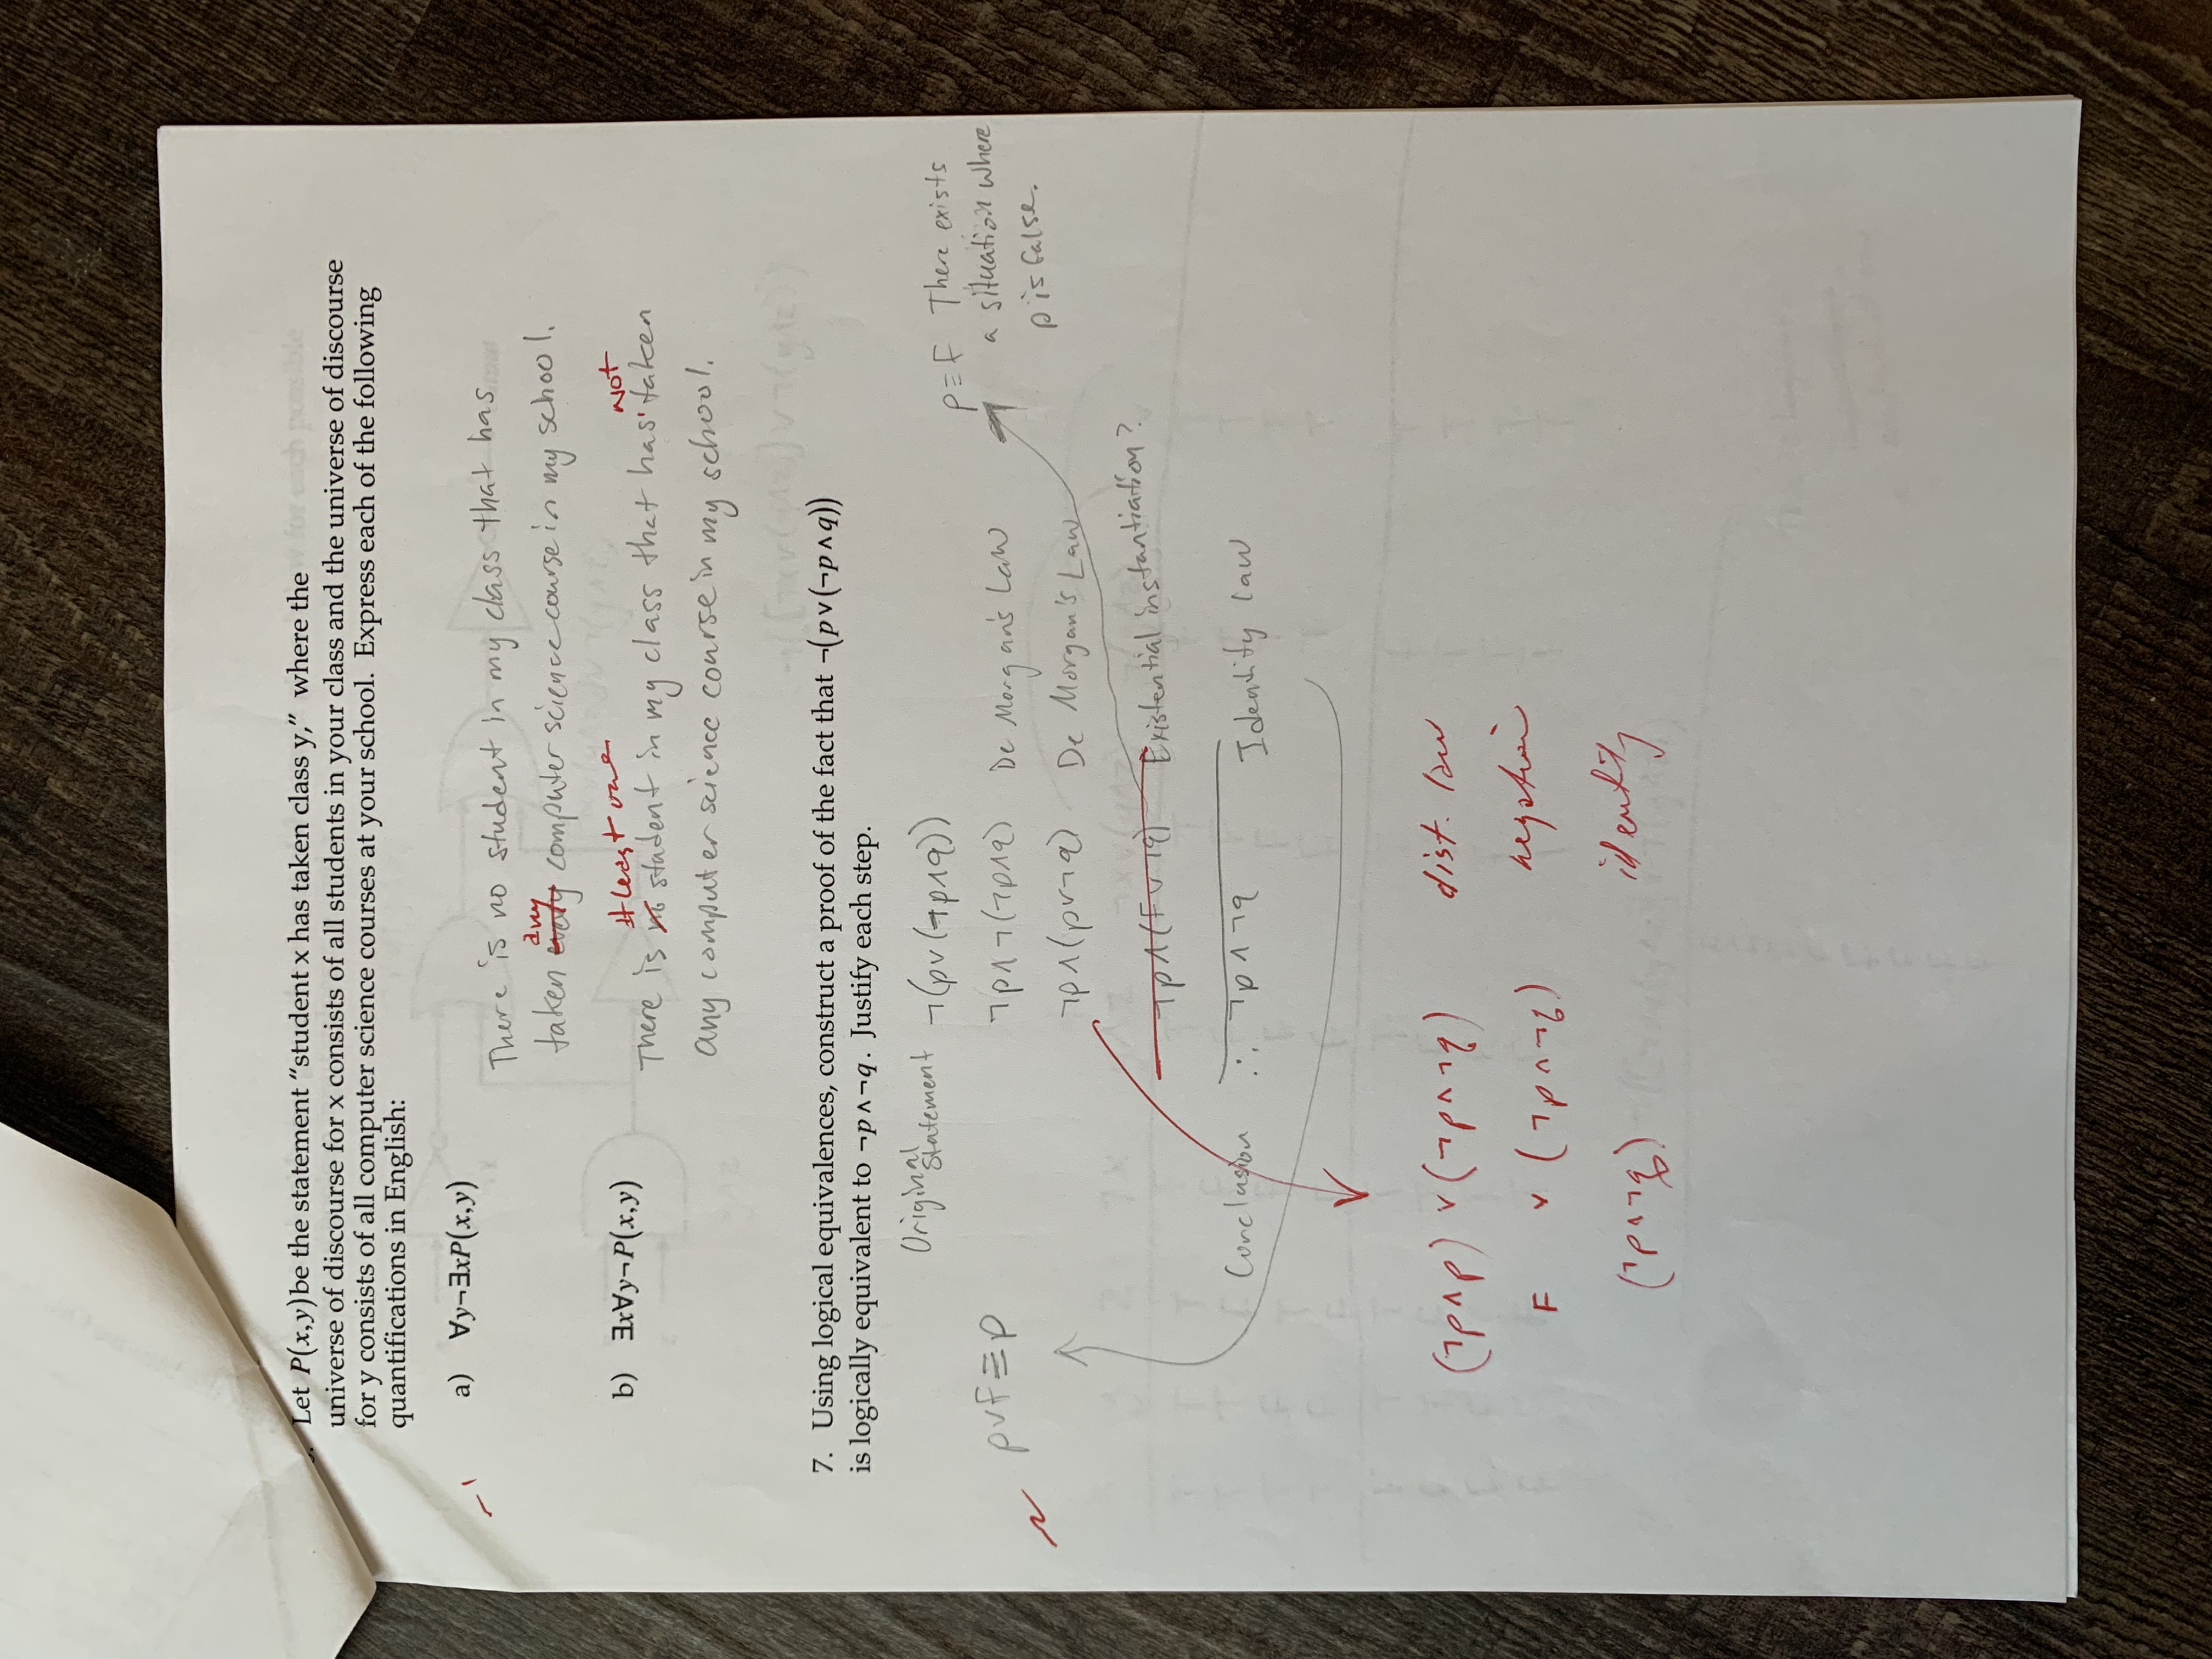 Let P(x,y) be the statement “student x has taken class y,” where the
universe of discourse for x consists of all students in your class and the universe of discourse
for y consists of all computer science courses at your school. Express each of the following
quantifications in English:
-1
a) ∀y¬∃xP(x,y)
There is no student in my class that has
any
taken every computer science course in my school.
b) ∃x∀y¬P(x,y)
at least one
not
There is no student in my class that has taken
any computer science course in my school.
7. Using logical equivalences, construct a proof of the fact that ¬(p∨(¬p∧q))
is logically equivalent to ¬p∧¬q. Justify each step.
Original Statement ¬(p∨(¬p∧q))
p∨F≡p
¬p∧¬(¬p∧q) De Morgan's Law
¬p∧(p∨¬q) De Morgan's Law
p≡F There exists
a situation where
p is false.
¬p∧(F∨¬q) Existential instantiation?
Conclusion ∴ ¬p∧¬q Identity law
(¬p∧p) ∨ (¬p∧¬q) dist. law
F ∨ (¬p∧¬q) negation
(¬p∧¬q) identity